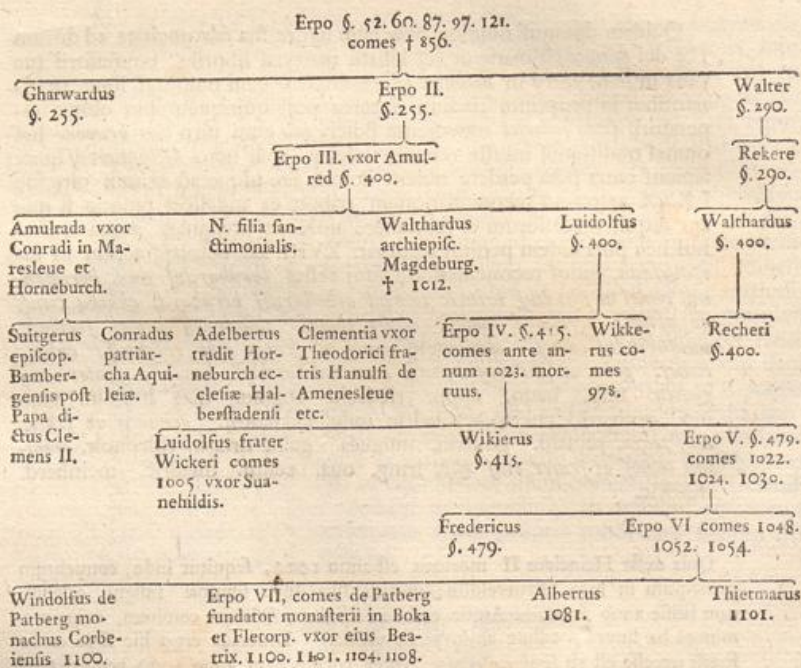 Erpo §. 52. 60. 87. 97. 121.
comes † 856.
Gharwardus
§. 255.
Erpo II.
§. 255.
Walter
§. 290.
Erpo III. vxor Amul-
red §. 400.
Rekere
§. 290.
Amulrada vxor
Conradi in Ma-
resleue et
Horneburch.
N. filia san-
ctimonialis.
Walthardus
archiepiſc.
Magdeburg.
† 1012.
Luidolfus
§. 400.
Walthardus
§. 400.
Suitgerus
epiſcop.
Bamber-
genſis poſt
Papa di-
ctus Cle-
mens II.
Conradus
patriar-
cha Aqui-
leiæ.
Adelbertus
tradit Hor-
neburch ec-
cleſiæ Hal-
berſtadenſi
Clementia vxor
Theodorici fra-
tris Hanulſi de
Amenesleue
etc.
Erpo IV. §. 415.
comes ante an-
num 1023. mor-
tuus.
Wikke-
rus co-
mes
978.
Recheri
§. 400.
Luidolfus frater
Wickeri comes
1005 vxor Sua-
nehildis.
Wikierus
§. 415.
Erpo V. §. 479.
comes 1022.
1024. 1030.
Fredericus
§. 479.
Erpo VI comes 1048.
1052. 1054.
Windolfus de
Patberg mo-
nachus Corbe-
ienſis 1100.
Erpo VII, comes de Patberg
fundator monaſterii in Boka
et Fletorp. vxor eius Bea-
trix. 1100. 1101. 1104. 1108.
Albertus
1081.
Thietmarus
1101.